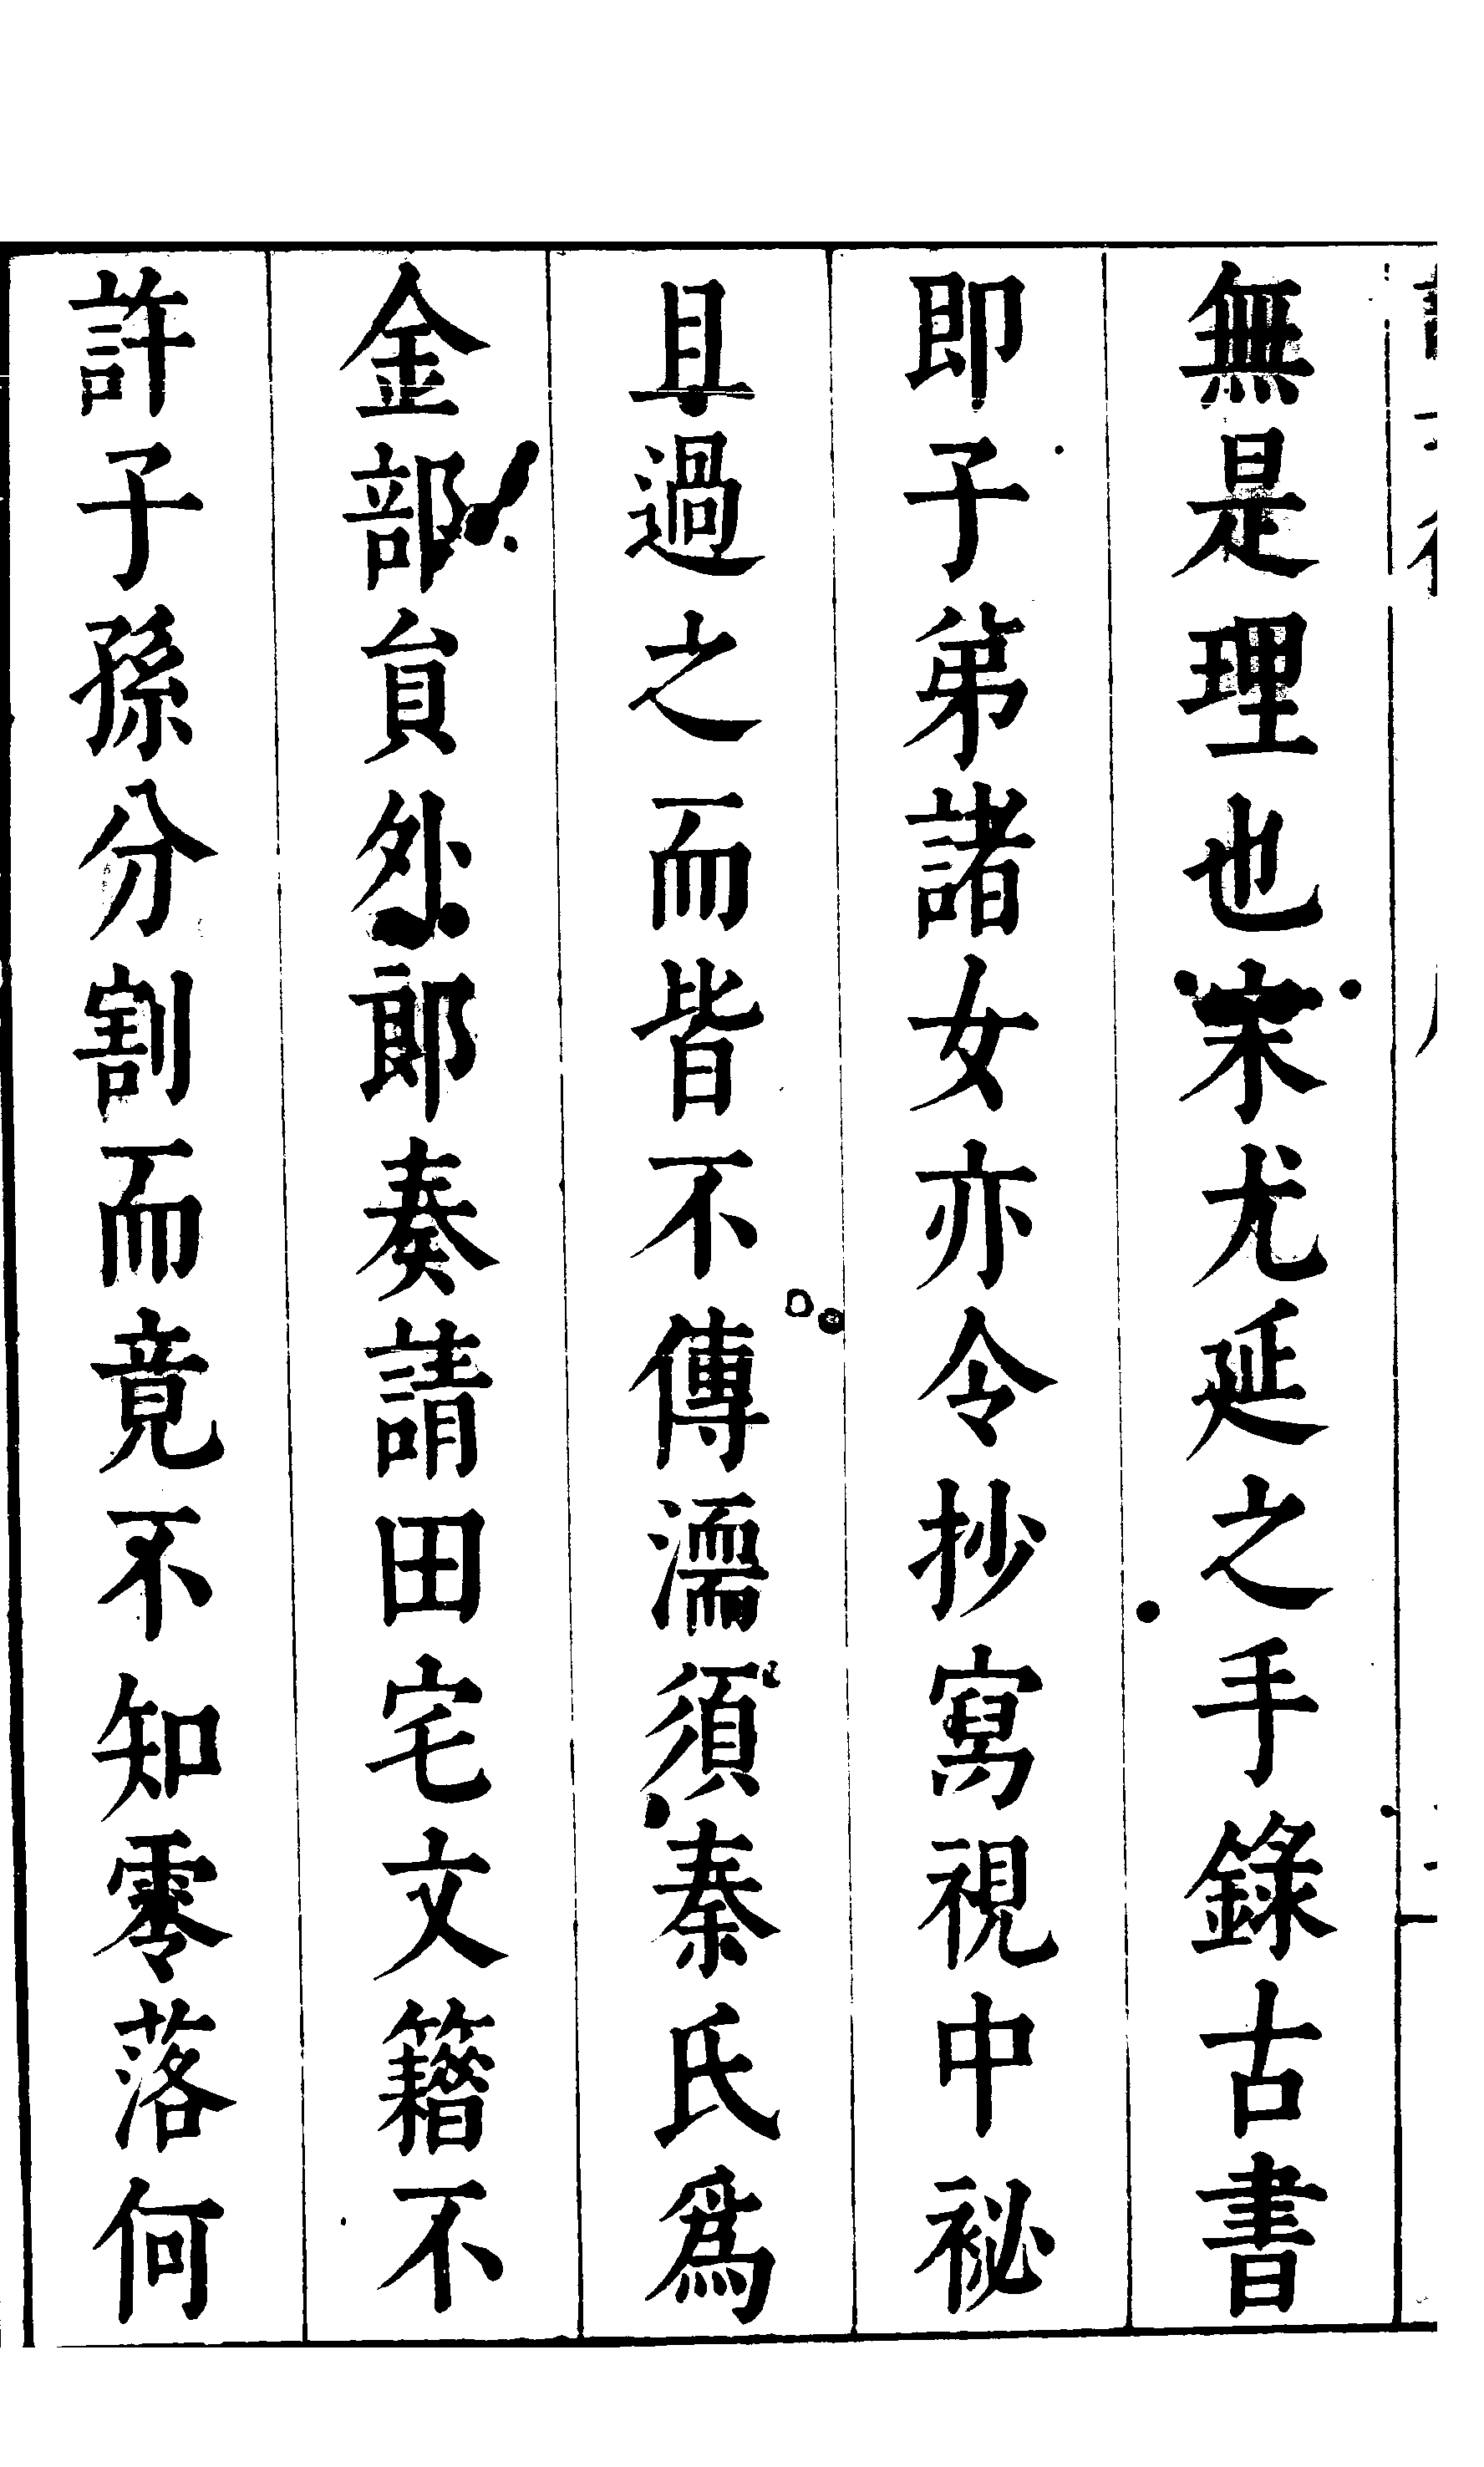 無是理也宋尤延之手錄古書
即子弟諸女亦令抄寫視中祕
且過之而皆不傳濡須秦氏爲
金部員外郎奏請田宅文籍不
許子孫分割而竟不知零落何